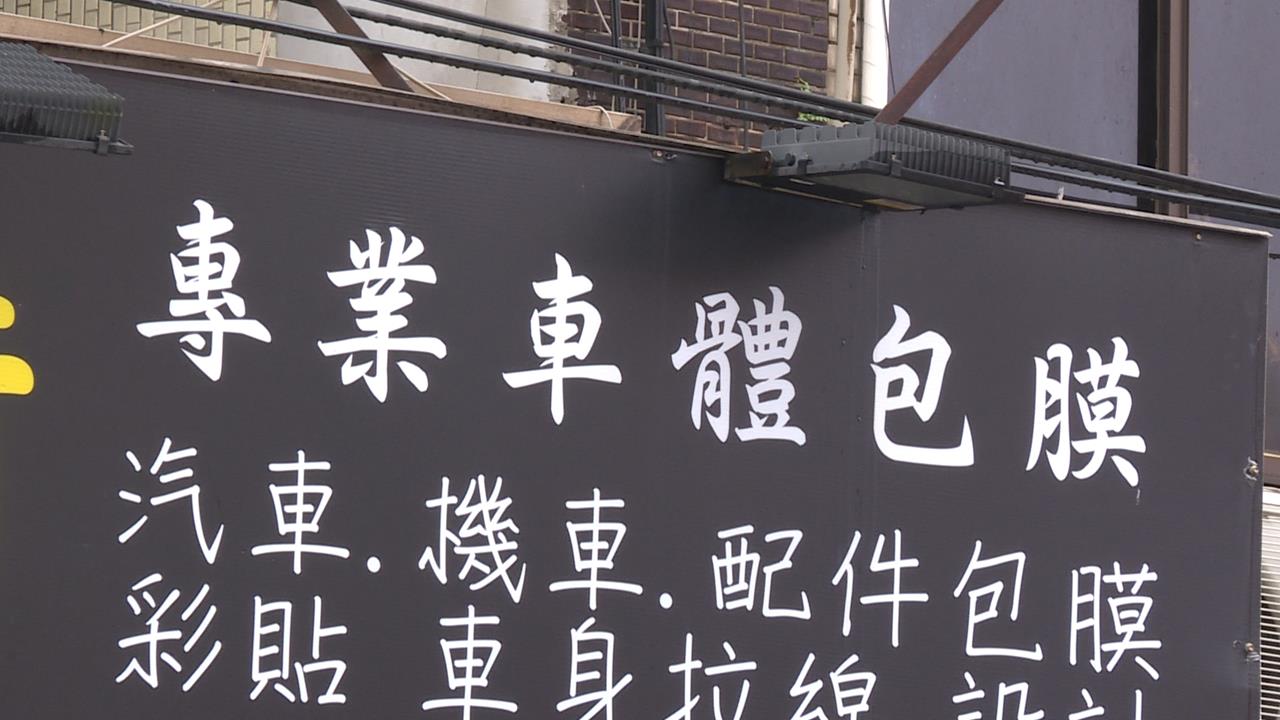 專業車體包膜
汽車.機車.配件包膜
彩貼 車身拉線 設計